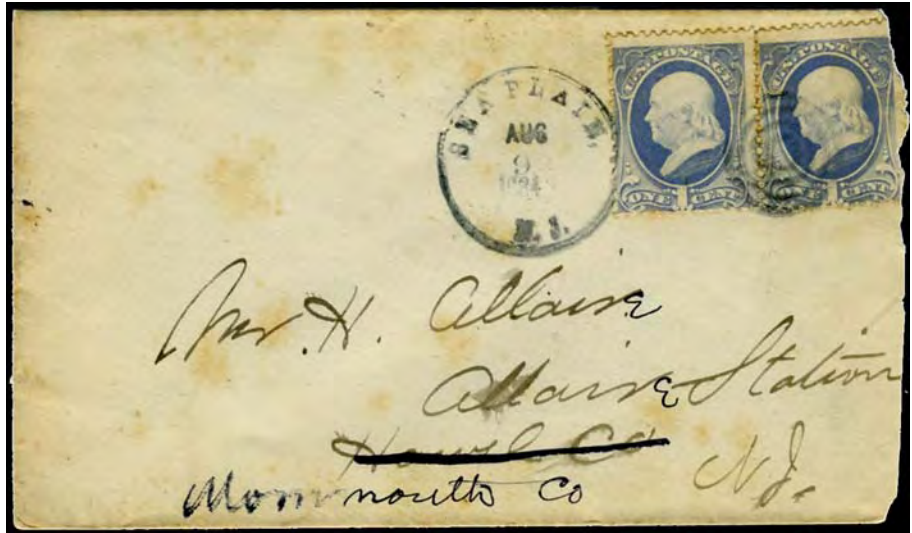 SEA PLAIN,
AUG
9
1884
N.J.
U.S. POSTAGE
ONE CENT
U.S. POSTAGE
ONE CENT
Mr. H. Allaire
Allaire Station
Howel Co
Monmouth Co N.J.